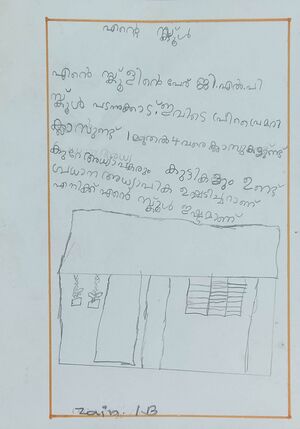 എന്റെ സ്കൂൾ
എന്റെ സ്കൂളിന്റെ പേര് ജി.എൽ.പി
സ്കൂൾ പടന്നക്കാട്. ഇവിടെ പ്രീപ്രൈമറി
ക്ലാസുണ്ട് 1 മുതൽ 4 വരെ ക്ലാസുകളുണ്ട്
കുറേ അധ്യാപകരും കുട്ടികളും ഉണ്ട്
പ്രധാന അധ്യാപിക ടീച്ചറാണ്
എനിക്ക് എന്റെ സ്കൂൾ ഇഷ്ടമാണ്
zain. 1.B